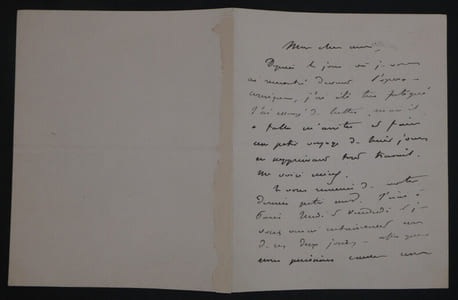 Mon cher ami,
Depuis le jour où je vous
ai rencontré devant l'opéra-
comique, j'ai été très fatigué
J'ai essayé de lutter, mais il
a fallu m'arrêter et faire
un petit voyage de huit jours
en supprimant tout travail.
Me voici mieux.
Je vous remercie de votre
dernier petit mot. J'irai à
Paris Vendredi
vous
de ces deux jours - afin que
nous puissions causer